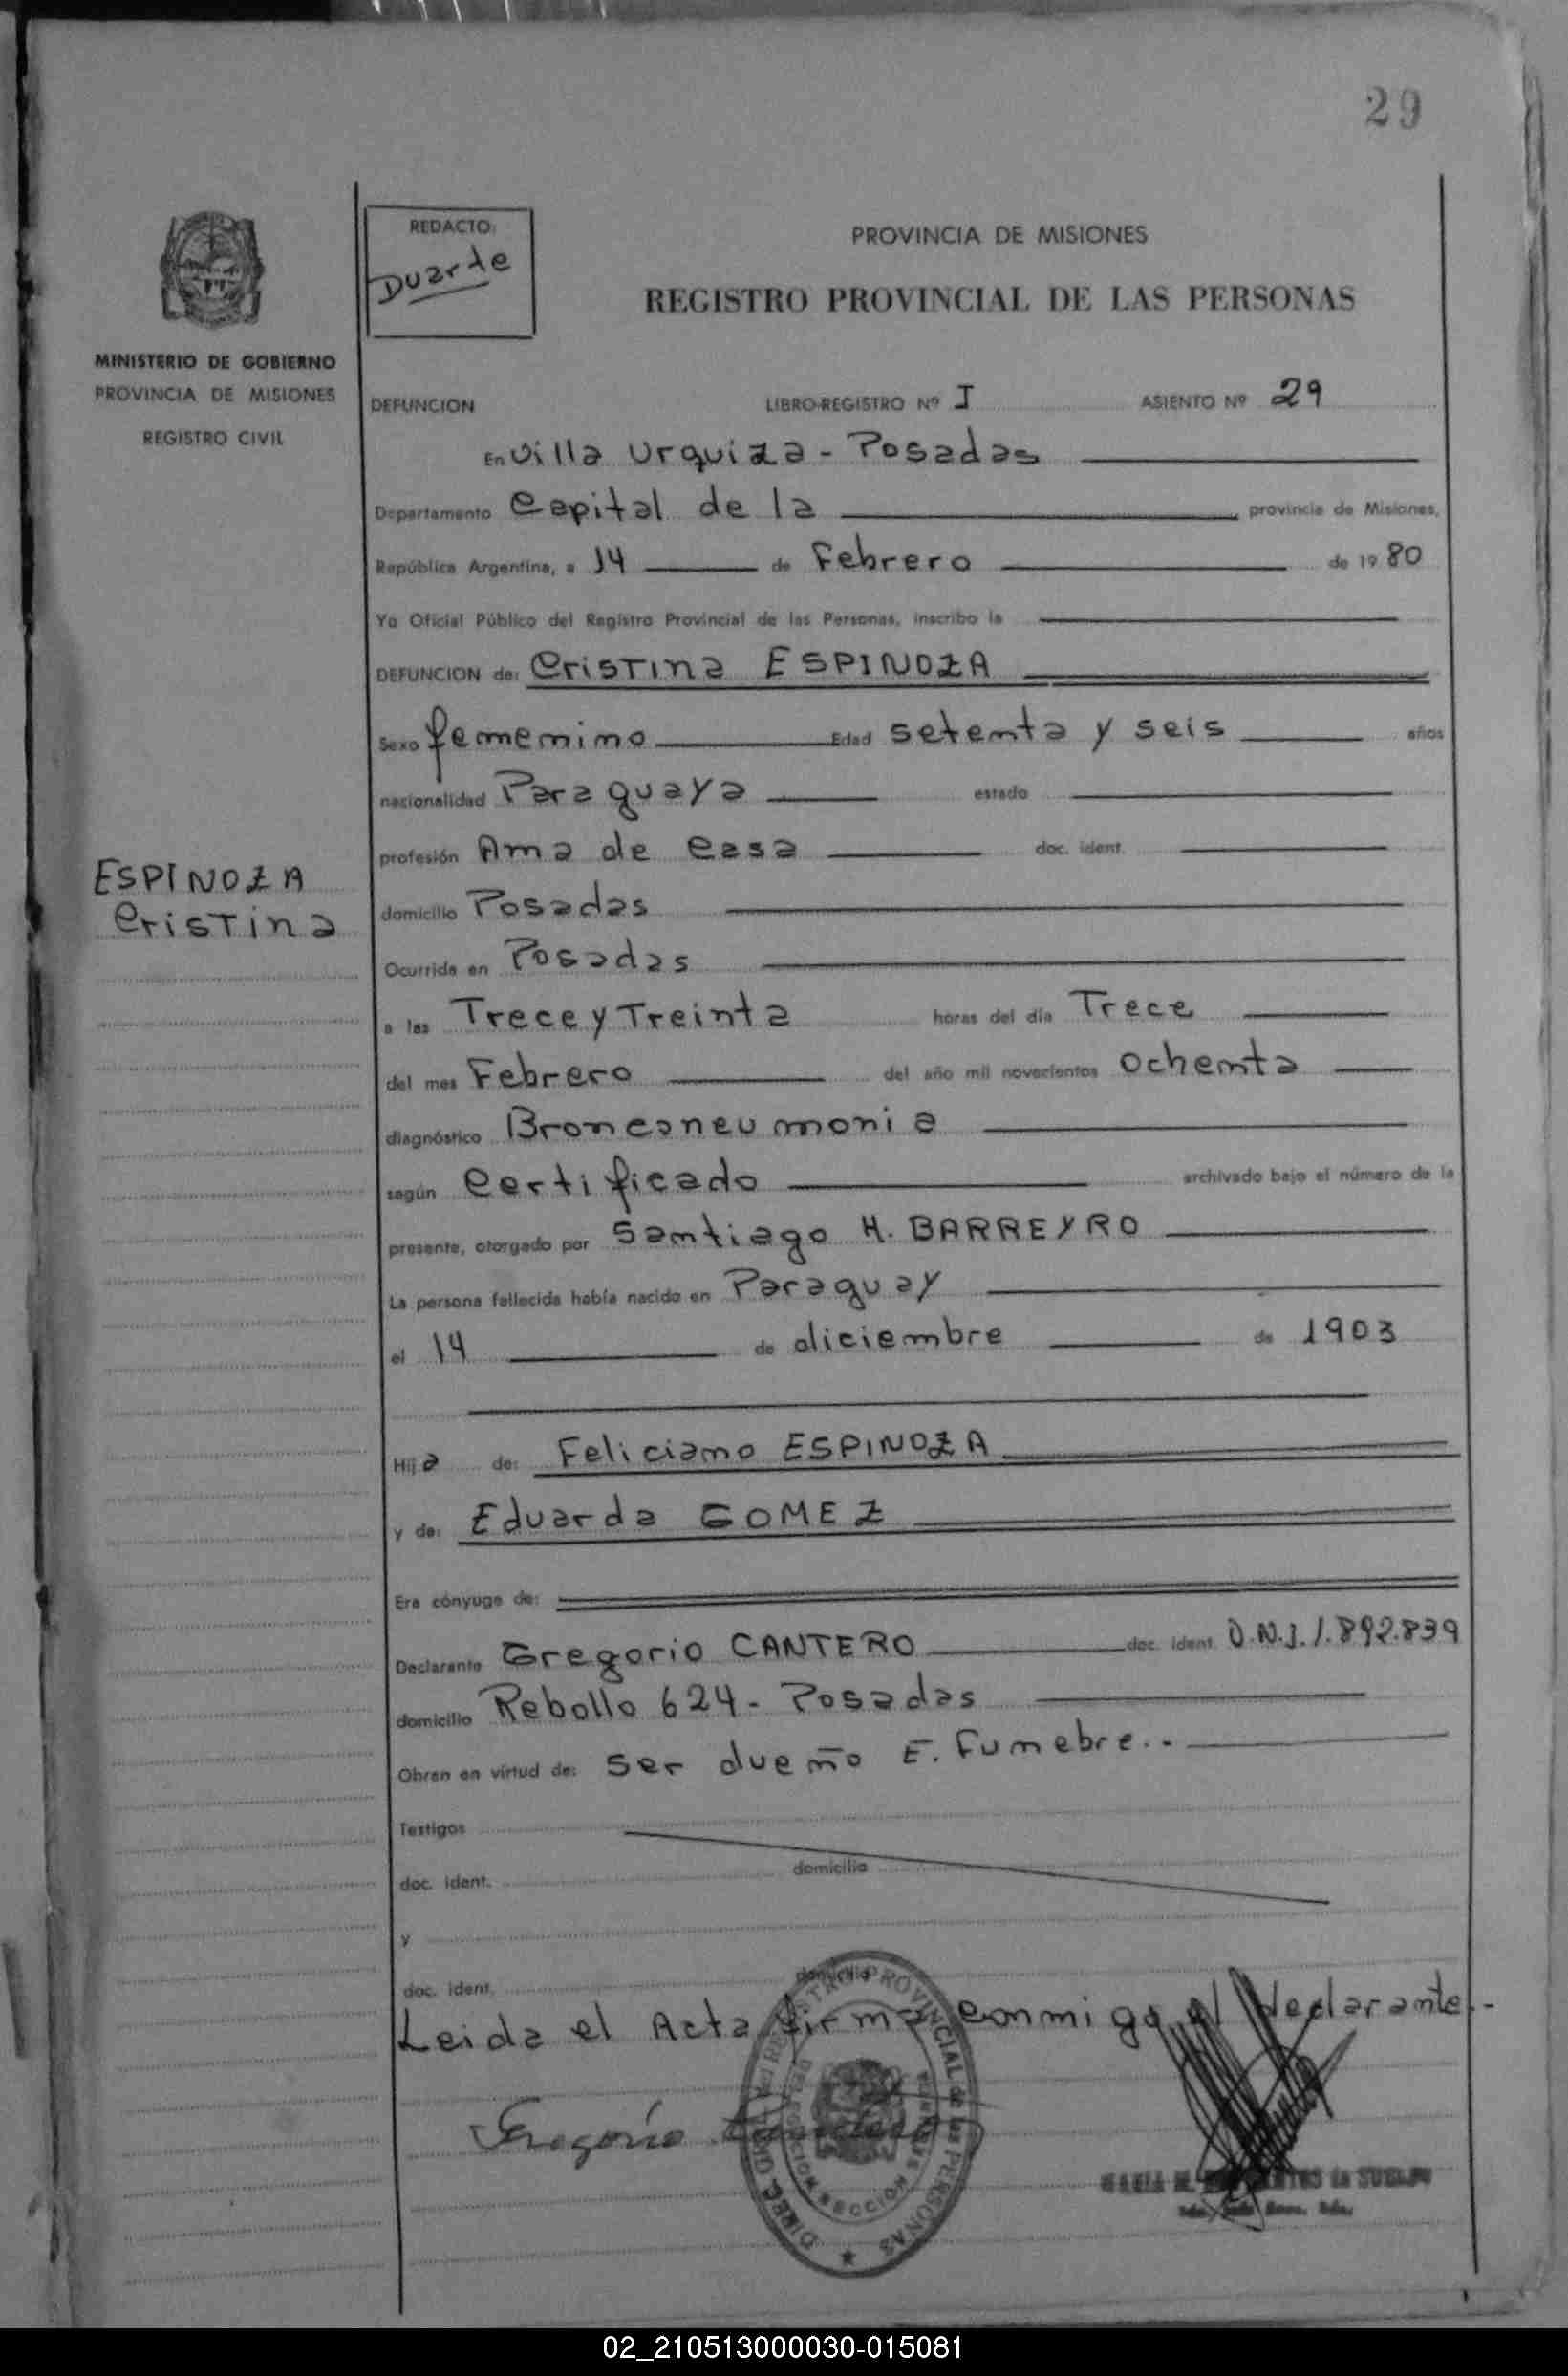 29
REDACTO:
Duarte
MINISTERIO DE GOBIERNO
PROVINCIA DE MISIONES
REGISTRO CIVIL
PROVINCIA DE MISIONES
REGISTRO PROVINCIAL DE LAS PERSONAS
DEFUNCION LIBRO-REGISTRO Nº I ASIENTO Nº 29
En Villa Urquiza - Posadas
Departamento Capital de la provincia de Misiones,
República Argentina, a 14 de Febrero de 1980
Yo Oficial Público del Registro Provincial de las Personas, inscribo la
DEFUNCION de: Cristina ESPINOZA
Sexo femenino Edad setenta y seis años
nacionalidad Paraguaya estado
profesión Ama de casa doc. ident.
ESPINOZA
Cristina
domicilio Posadas
Ocurrida en Posadas
a las Trece y Treinta horas del día Trece
del mes Febrero del año mil novecientos Ochenta
diagnóstico Bronconeumonia
según Certificado archivado bajo el número de la
presente, otorgado por Santiago H. BARREYRO
La persona fallecida había nacido en Paraguay
el 14 de diciembre de 1903
Hija de: Feliciano ESPINOZA
y de: Eduarda GOMEZ
Era cónyuge de:
Declarante Gregorio CANTERO doc. ident. D.N.I. 1.892.839
domicilio Rebollo 624 - Posadas
Obran en virtud de: ser dueño E. Funebre..
Testigos
doc. ident. domicilio
y
doc. ident. domicilio
Leida el Acta firma conmigo el declarante.-
Gregorio Cantero
REGISTRO PROVINCIAL de las PERSONAS
02_210513000030-015081